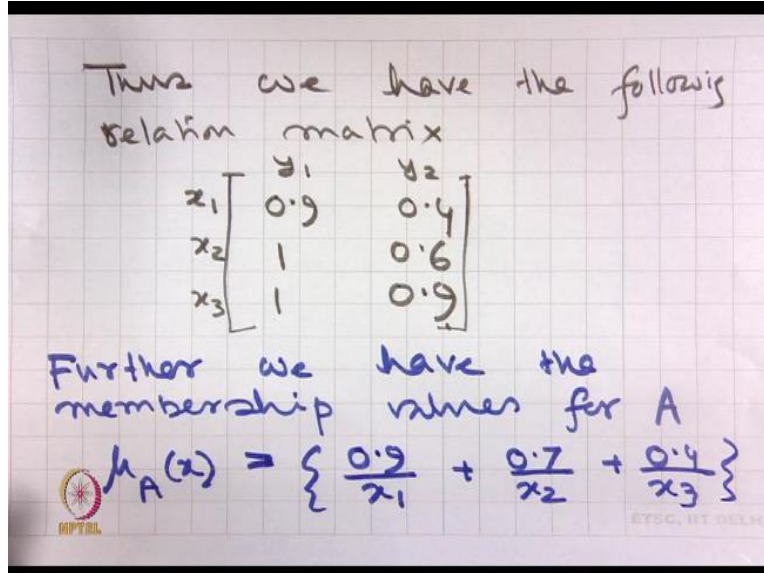 Thus we have the followig
relation matrix
y₁ y₂
x₁ 0.9 0.4
x₂ 1 0.6
x₃ 1 0.9
Further we have the
membership values for A
μ_A(x) = { 0.9/x₁ + 0.7/x₂ + 0.4/x₃ }
NPTEL
ETSC, IIT DELHI